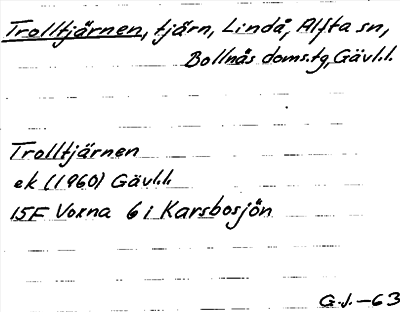 Trolltjärnen, tjärn, Lindå, Alfta sn,
Bollnäs doms.tg, Gävl.l.
Trolltjärnen
ek (1960) Gävl.l.
15F Voxna 6 i Karsbosjön
G.J.-63